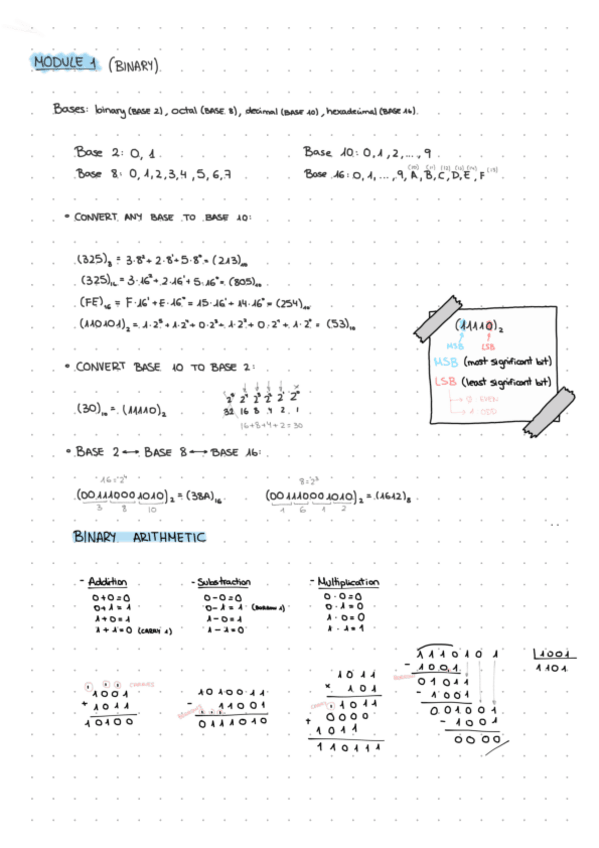 MODULE 1 (BINARY).
Bases: binary (BASE 2), octal (BASE 8), decimal (BASE 10), hexadecimal (BASE 16).
Base 2: 0, 1
Base 10: 0, 1, 2, ..., 9
Base 8: 0, 1, 2, 3, 4, 5, 6, 7
(10) (11) (12) (13) (14) (15)
Base 16: 0, 1, ..., 9, A, B, C, D, E, F
• CONVERT ANY BASE TO BASE 10:
(325)₈ = 3·8² + 2·8¹ + 5·8⁰ = (213)₁₀
(325)₁₆ = 3·16² + 2·16¹ + 5·16⁰ = (805)₁₀
(FE)₁₆ = F·16¹ + E·16⁰ = 15·16¹ + 14·16⁰ = (254)₁₀
(110101)₂ = 1·2⁵ + 1·2⁴ + 0·2³ + 1·2² + 0·2¹ + 1·2⁰ = (53)₁₀
(11110)₂
MSB LSB
MSB (most significant bit)
LSB (least significant bit)
→ 0 EVEN
→ 1 ODD
• CONVERT BASE 10 TO BASE 2:
2⁵ 2⁴ 2³ 2² 2¹ 2⁰
(30)₁₀ = (11110)₂
32 16 8 4 2 1
16+8+4+2=30
• BASE 2 ⟷ BASE 8 ⟷ BASE 16:
16=2⁴
8=2³
(001110001010)₂ = (38A)₁₆
3 8 10
(001110001010)₂ = (1612)₈
1 6 1 2
BINARY ARITHMETIC
- Addition
0+0=0
0+1=1
1+0=1
1+1=0 (CARRY 1)
- Substraction
0-0=0
0-1=1 (BORROW 1)
1-0=1
1-1=0
- Multiplication
0·0=0
0·1=0
1·0=0
1·1=1
CARRIES
1001
+ 1011
10100
1010011
- 11001
0111010
1011
× 101
1011
0000
+ 1011
110111
1110101 1001
- 1001 1101
01011
- 1001
001001
- 1001
0000